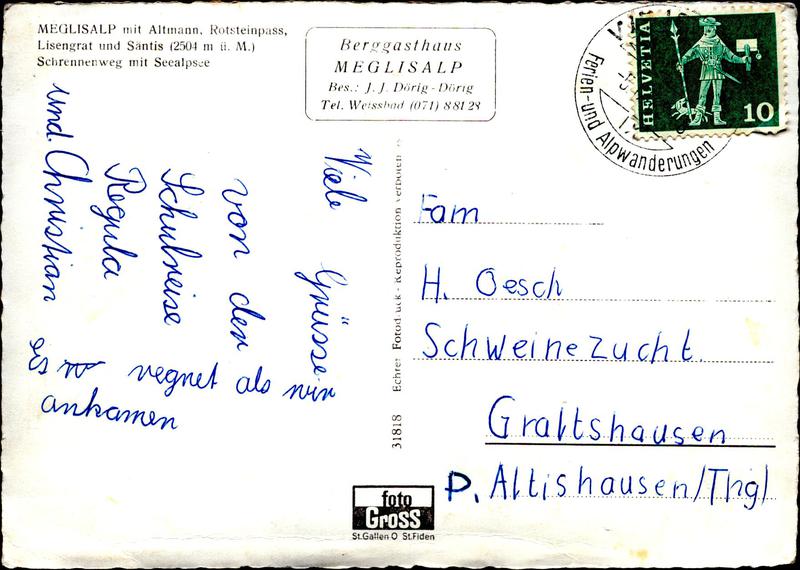 MEGLISALP mit Altmann, Rotsteinpass,
Lisengrat und Säntis (2504 m ü. M.)
Schrennenweg mit Seealpsee
Berggasthaus
MEGLISALP
Bes.: J. J. Dörig - Dörig
Tel. Weissbad (071) 8 81 28
HELVETIA
10
Ferien- und Alpwanderungen
Viele Grüsse
von der
Schulreise
Regula
und Christian
es regnet als wir
ankamen
31818 Echter Fotodruck - Reproduktion verboten
Fam
H. Oesch
Schweinezucht.
Graltshausen
P. Altishausen/Thg
foto
Gross
St.Gallen O St.Fiden